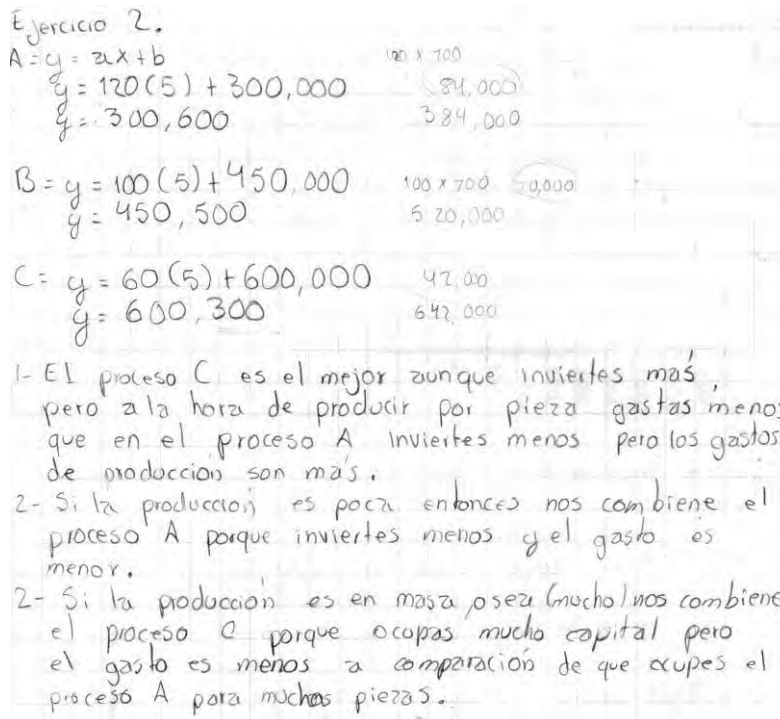 Ejercicio 2.
A = y = ax+b
y = 120(5) + 300,000
y = 300,600
120 x 700
84,000
384,000
B = y = 100(5) + 450,000
y = 450,500
100 x 700 70,000
520,000
C = y = 60(5) + 600,000
y = 600,300
42,000
642,000
1- El proceso C es el mejor aunque inviertes más
pero a la hora de producir por pieza gastas menos
que en el proceso A inviertes menos pero los gastos
de produccion son más.
2- Si la produccion es poca entonces nos combiene el
proceso A porque inviertes menos y el gasto es
menor.
2- Si la producción es en masa, osea (mucho) nos combiene
el proceso C porque ocupas mucho capital pero
el gasto es menos a comparación de que ocupes el
proceso A para muchas piezas.